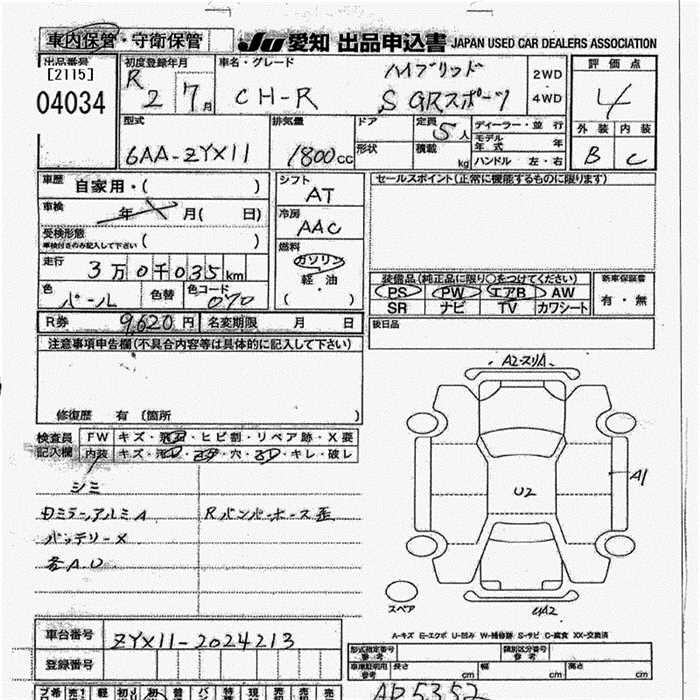 車内保管・守衛保管
JU 愛知 出品申込書 JAPAN USED CAR DEALERS ASSOCIATION
出品番号
[2115]
04034
初度登録年月
R 2 7月
車名・グレード
ハイブリッド
CH-R S GRスポーツ
2WD
・
4WD
評価点
4
外装 内装
B C
型式
6AA-ZYX11
排気量
1800cc
ドア
形状
定員 5人
積載 kg
ディーラー・並行
モデル年式 年
ハンドル 左・右
車歴 自家用・( )
車検 年 月( 日)
受検形態
車検付きのみ記入して下さい ( )
走行 3万0千035km
色 パール 色替 色コード 070
シフト
AT
冷房
AAC
燃料
ガソリン
軽・油
( )
セールスポイント(正常に機能するものに限ります)
装備品(純正品に限り○をつけてください)
PS PW エアB AW
SR ナビ TV カワシート
新車保証書
有・無
R券 9,620円 名変期限 月 日
後日品
注意事項申告欄(不具合内容等は具体的に記入して下さい)
修復歴 有(箇所 )
検査員
記入欄
FW キズ・飛石・ヒビ割・リペア跡・X要
内装 キズ・・・穴・・キレ・破レ
シミ
ミラー,アルミA Rバンパーホース歪
バッテリーX
各A.U
A2-スリA
A1
U2
UA2
スペア
A-キズ E-エクボ U-凹み W-補修跡 S-サビ C-腐食 XX-交換済
車台番号 ZYX11-2024213
登録番号
型式指定番号
参考
類別区分番号
参考
車庫証明用
参考
長さ cm 幅 cm 高さ cm
AP5352